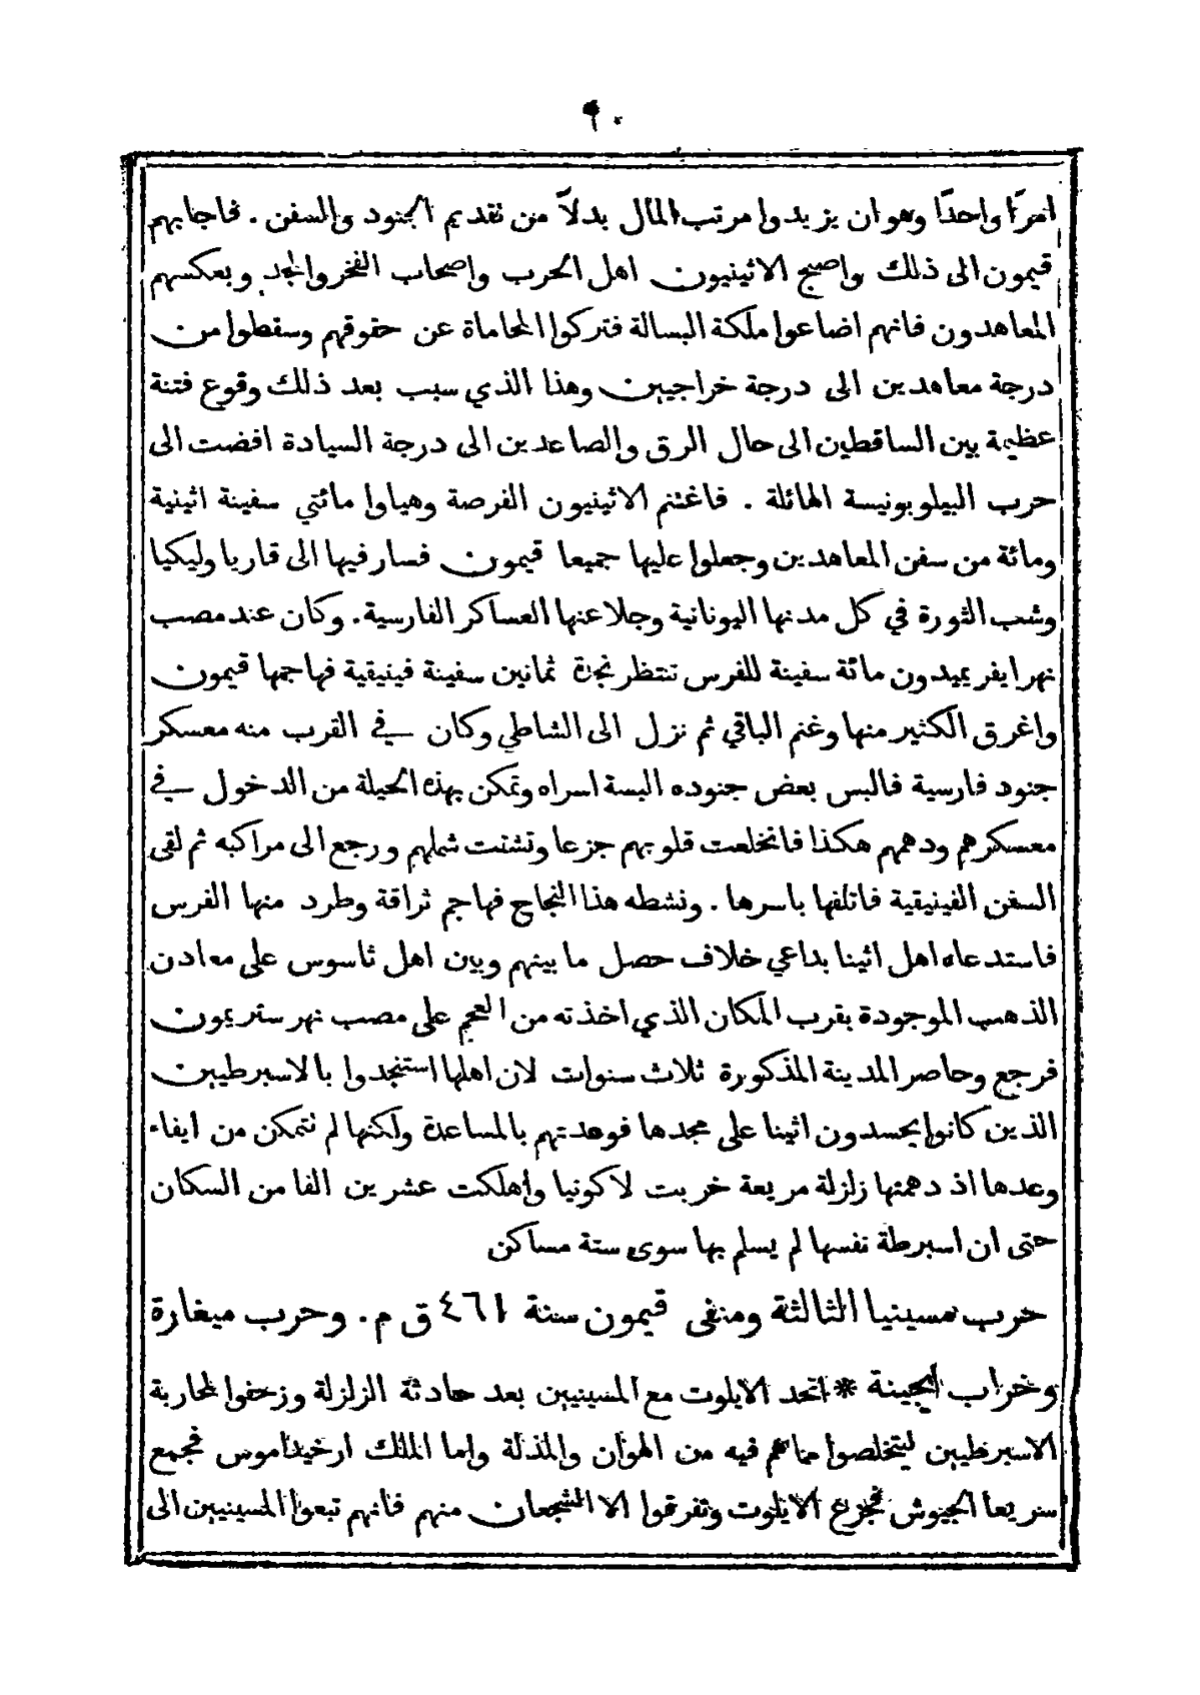 ٩٠
امرًا واحدًا وهو ان يزيدوا مرتب المال بدلاً من تقديم الجنود والسفن . فاجابهم
قيمون الى ذلك واصبح الاثينيون اهل الحرب واصحاب الفخر والمجد وبعكسهم
المعاهدون فانهم اضاعوا ملكة البسالة فتركوا المحاماة عن حقوقهم وسقطوا من
درجة معاهدين الى درجة خراجيين وهذا الذي سبب بعد ذلك وقوع فتنة
عظيمة بين الساقطين الى حال الرق والصاعدين الى درجة السيادة افضت الى
حرب البيلوبونيسة الهائلة . فاغتنم الاثينيون الفرصة وهياوا مائتي سفينة اثينية
ومائة من سفن المعاهدين وجعلوا عليها جميعا قيمون فسار فيها الى قاريا وليكيا
وشب الثورة في كل مدنها اليونانية وجلا عنها العساكر الفارسية. وكان عند مصب
نهر ايفريميدون مائة سفينة للفرس تنتظر نجدة ثمانين سفينة فينيقية فهاجمها قيمون
واغرق الكثير منها وغنم الباقي ثم نزل الى الشاطي وكان في القرب منه معسكر
جنود فارسية فالبس بعض جنوده البسة اسراه وتمكن بهذه الحيلة من الدخول في
معسكرهم ودهمهم هكذا فانخلعت قلوبهم جزعا وتشتت شملهم ورجع الى مراكبه ثم لقى
السفن الفينيقية فاتلفها باسرها . ونشطه هذا النجاح فهاجم ثراقة وطرد منها الفرس
فاستدعاه اهل اثينا بداعي خلاف حصل ما بينهم وبين اهل ثاسوس على معادن
الذهب الموجودة بقرب المكان الذي اخذته من العجم على مصب نهر ستريمون
فرجع وحاصر المدينة المذكورة ثلاث سنوات لان اهلها استنجدوا بالاسبرطيين
الذين كانوا يحسدون اثينا على مجدها فوعدتهم بالمساعدة ولكنها لم تتمكن من ايفاء
وعدها اذ دهمتها زلزلة مريعة خربت لاكونيا واهلكت عشرين الفا من السكان
حتى ان اسبرطة نفسها لم يسلم بها سوى ستة مساكن
حرب مسينيا الثالثة ومنفى قيمون سنة ٤٦١ ق م. وحرب ميغارة
وخراب ايجينة * اتحد الايلوت مع المسينيين بعد حادثة الزلزلة وزحفوا لمحاربة
الاسبرطيين ليتخلصوا مما هم فيه من الهوان والمذلة واما الملك ارخيداموس فجمع
سريعا الجيوش فجزع الايلوت وتفرقوا الا الشجعان منهم فانهم تبعوا المسينيين الى